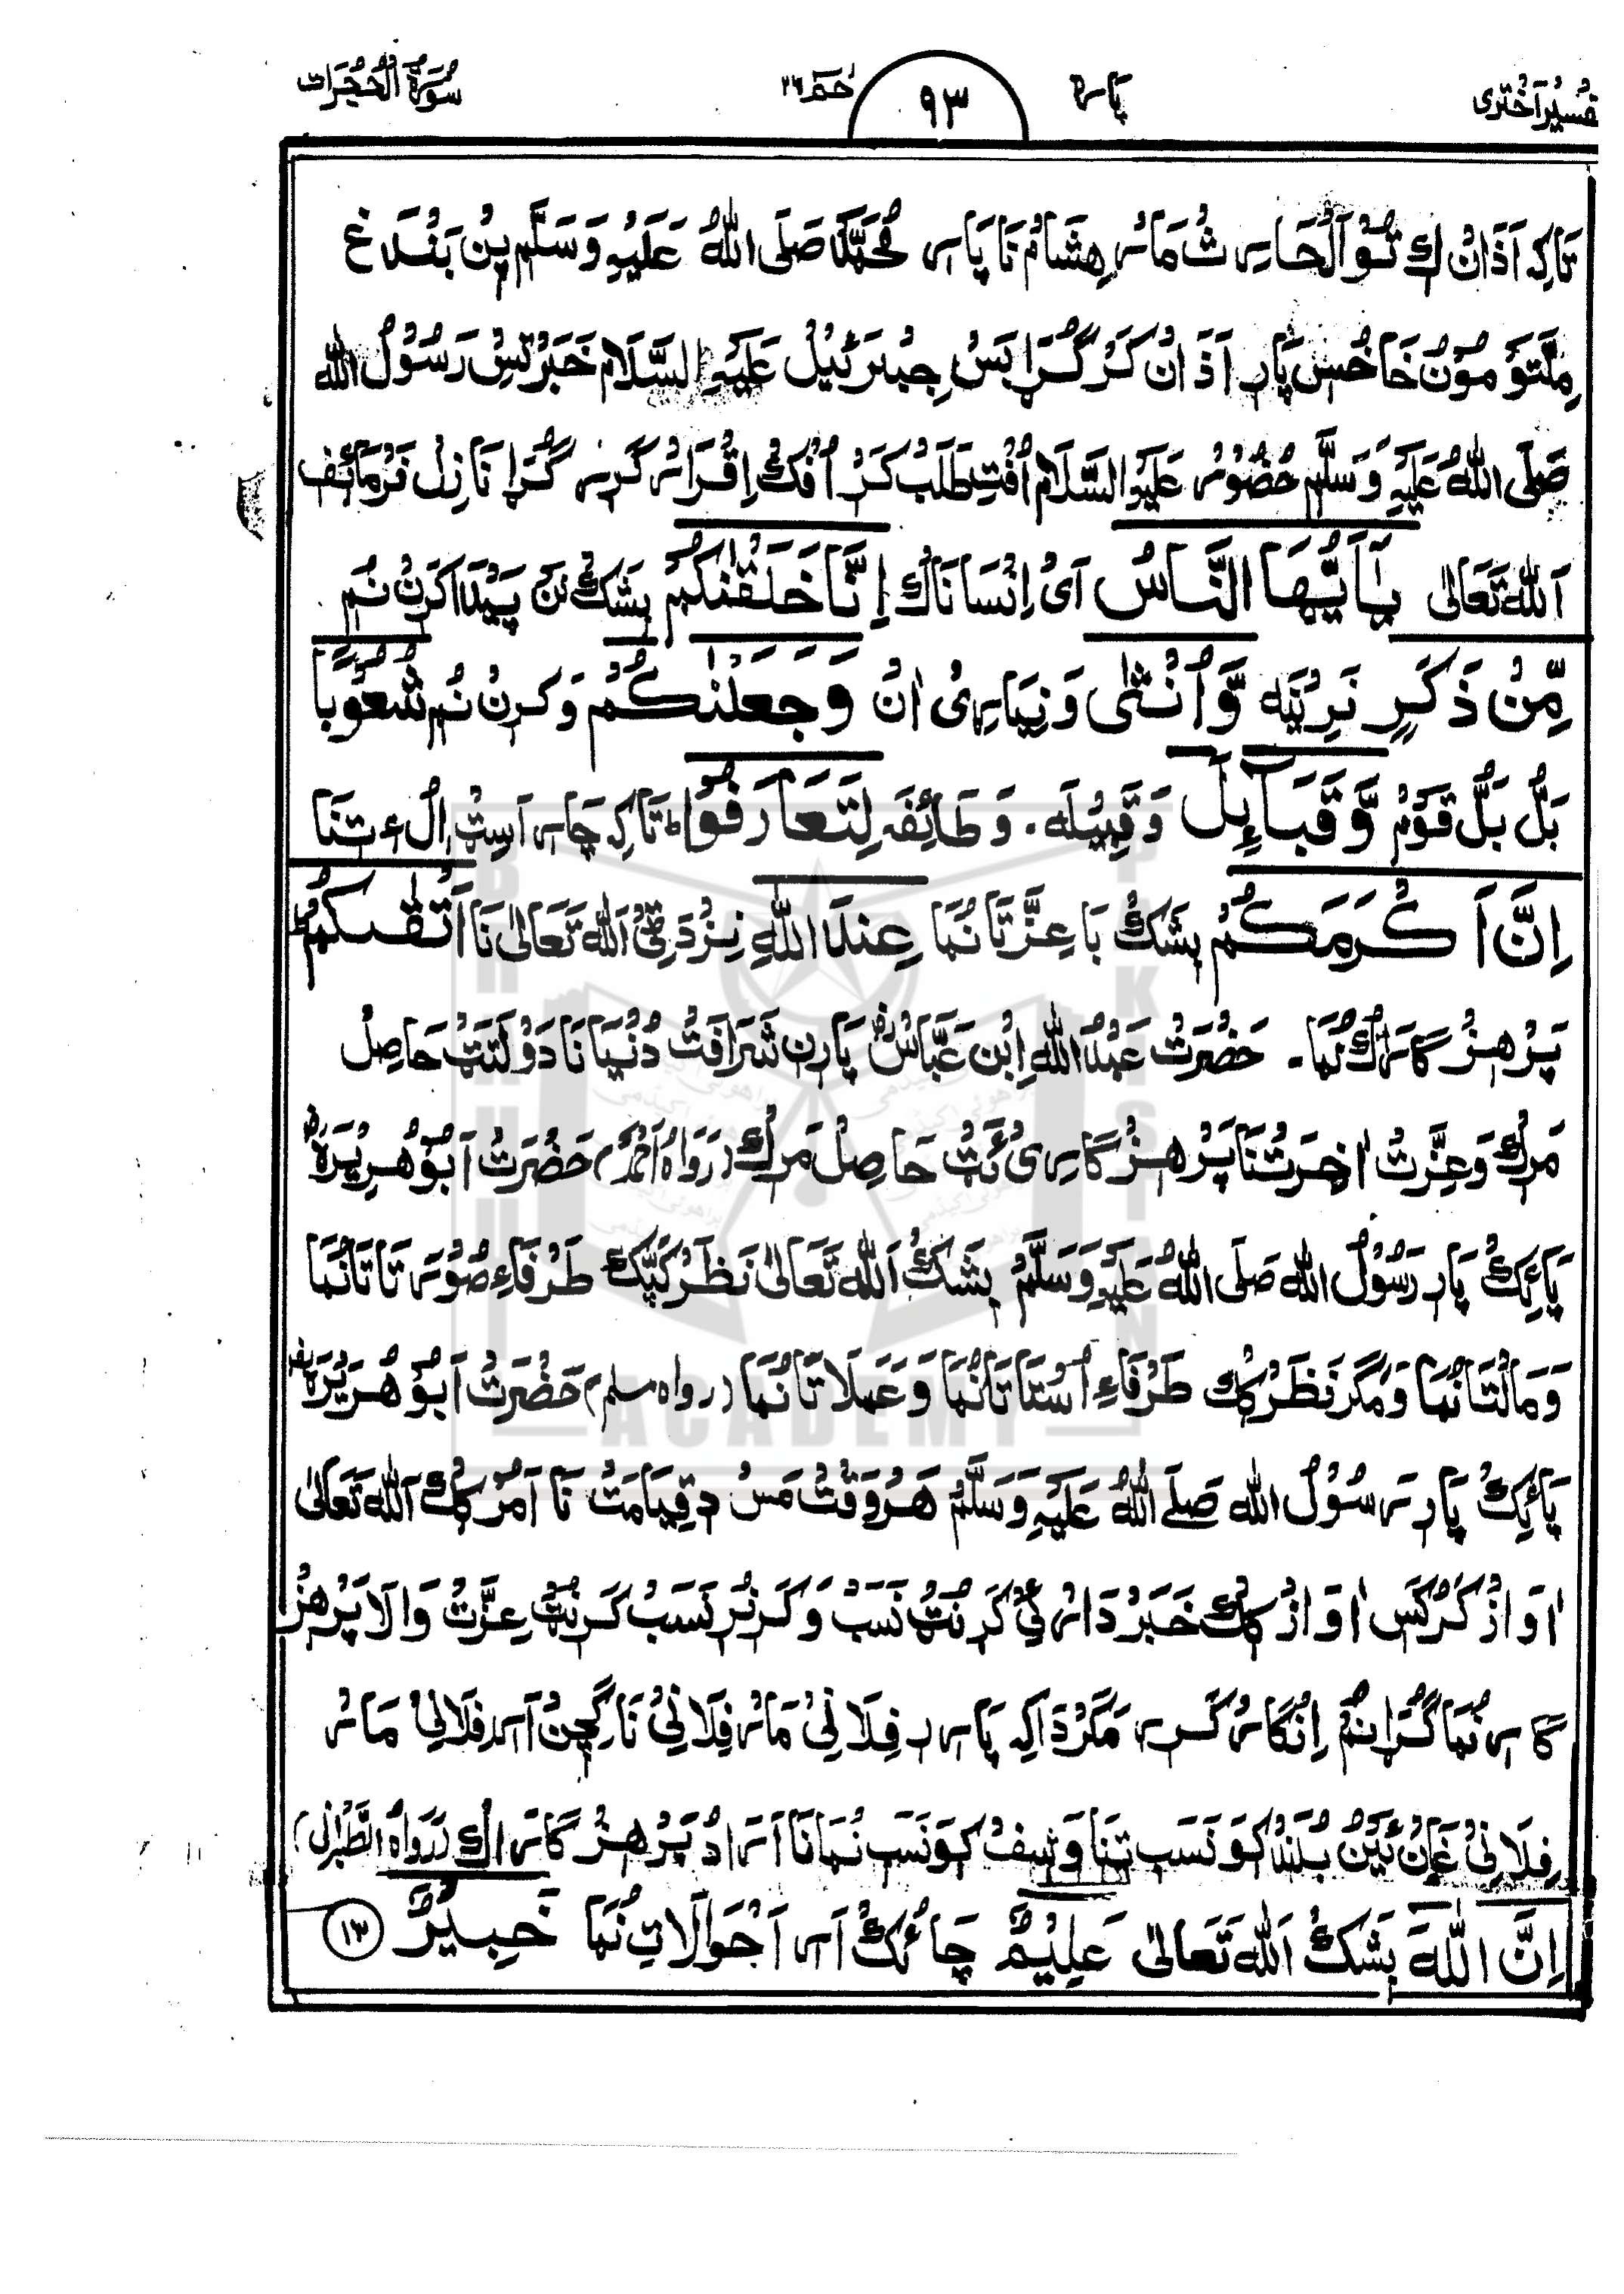 تفسیر اختری پاره ۹۳ حٰمٓ ۲۶ سُورَةُ الْحُجُرَات
تَاکِہ اَذَانْ حَارِث مَارْ هِشَامْ نَا پَارِی مُحَمَّدْ صَلَی اللهُ عَلَیْهِ وَسَلَّم بَغْدَ غ
خَاخُسْ پَارِ اَذَانْ کَرْ گُڑَا بَسْ جِبْرَئِیْلْ عَلَیْهِ السَّلَام خَبَرْ تِسْ رَسُوْلُ الله
صَلَی اللهُ عَلَیْهِ وَسَلَّم حُضُوْرْ عَلَیْهِ السَّلَام اُفْتِ طَلَبْ کَرْ اُفْکْ اِقْرَارْ کَرِیرْ گُڑَا نَازِلْ فَرْمَائِف
اَللّٰه تَعَالٰی یٰۤاَیُّهَا النَّاسُ اَیْ اِنْسَانَاكْ اِنَّا خَلَقْنٰكُمْ بِشَكْ نَنْ پَیْدَا کَرِنْ نُمِ
مِّنْ ذَكَرٍ نَرِیْنَه وَّاُنْثٰی وَ نِیَارِیْ اٰنْ وَجَعَلْنٰكُمْ وَ کَرِنْ نُمِ شُعُوْبًا
بَلُّ بَلُّ قَوْمْ وَّقَبَآئِلَ وَ قَبِیْلَه۔ وَ طَائِفَہ لِتَعَارَفُوْا ط تَاکِہ چَارِ اَسِتْ اِلْ ءِ تِنَا
اِنَّ اَكْرَمَكُمْ بِشَكْ بَا عِزَّتَا نُمَا عِنْدَ اللهِ نِزْدَ قِیْ اَللّٰه تَعَالٰی نَا اَتْقٰىكُمْ ط
پَرْهِزْ گَارَاكْ نُمَا۔ حَضْرَتْ عَبْدُ اللهِ اِبْن عَبَّاسْ پَارِنْ شَرَافَتْ دُنْیَا نَا دَوْلَتَتْ حَاصِلْ
مَرِكْ وَ عِزَّتْ اٰخِرَتْ نَا پَرْهِزْ گَارِیْ ئَتْ حَاصِلْ مَرِكْ (رَوَاهُ اَحْمَدْ) حَضْرَتْ اَبُوْ هُرَیْرَهْ
پَائِکْ پَارِ رَسُوْلُ الله صَلَی اللهُ عَلَیْهِ وَسَلَّمْ بِشَكْ اَللّٰه تَعَالٰی نَظَرْ کَپَّكْ طَرْفَاءِ صُوْرَتَا تَا نُمَا
وَ مَالْتَا نُمَا وَ مَگَر نَظَرْ کِكْ طَرْفَاءِ اُسْتَاتَا نُمَا وَ عَمَلَاتَا نُمَا (رواه مسلم) حَضْرَتْ اَبُوْ هُرَیْرَهْ
پَائِکْ پَارِ رَسُوْلُ الله صَلَی اللهُ عَلَیْهِ وَسَلَّمْ هَرْوَقْتْ مَسْ دِ قِیَامَتْ نَا اَمْرْ کِكْ اَللّٰه تَعَالٰی
اٰوَازْ کَرْکَسْ اٰوَازْ کِكْ خَبَرْدَارْ کَرِنُٹْ نَسَبْ وَ کَرِنُرْ نَسَبْ کَرِنُٹْ عِزَّتْ وَالَا پَرْهِزْ
گَارِ نُمَا گُڑَا نُمْ اِنْکَارْ کَرِرْ مَگَرْ دَاکِه پَارِرْ فِلَانِیْ مَارْ فِلَانِیْ نَا گِچِنْ اَرِ فِلَانِیْ مَارْ
فِلَانِیْ غَانْ اَیْنُ بُلَنْدْ کَوْ نَسَبِ تِنَا وَ شِفْ کَوْ نَسَبِ نُمَا نَا اَرَادْ پَرْهِزْ گَارَاكْ (رَوَاهُ الطَّبْرَانِی)
اِنَّ اللهَ بِشَكْ اَللّٰه تَعَالٰی عَلِیْمٌ چَائِکْ اَرِ اَحْوَالَاتِ نُمَا خَبِیْرٌ ۱۳
BRAHUI ACADEMY PAKISTAN